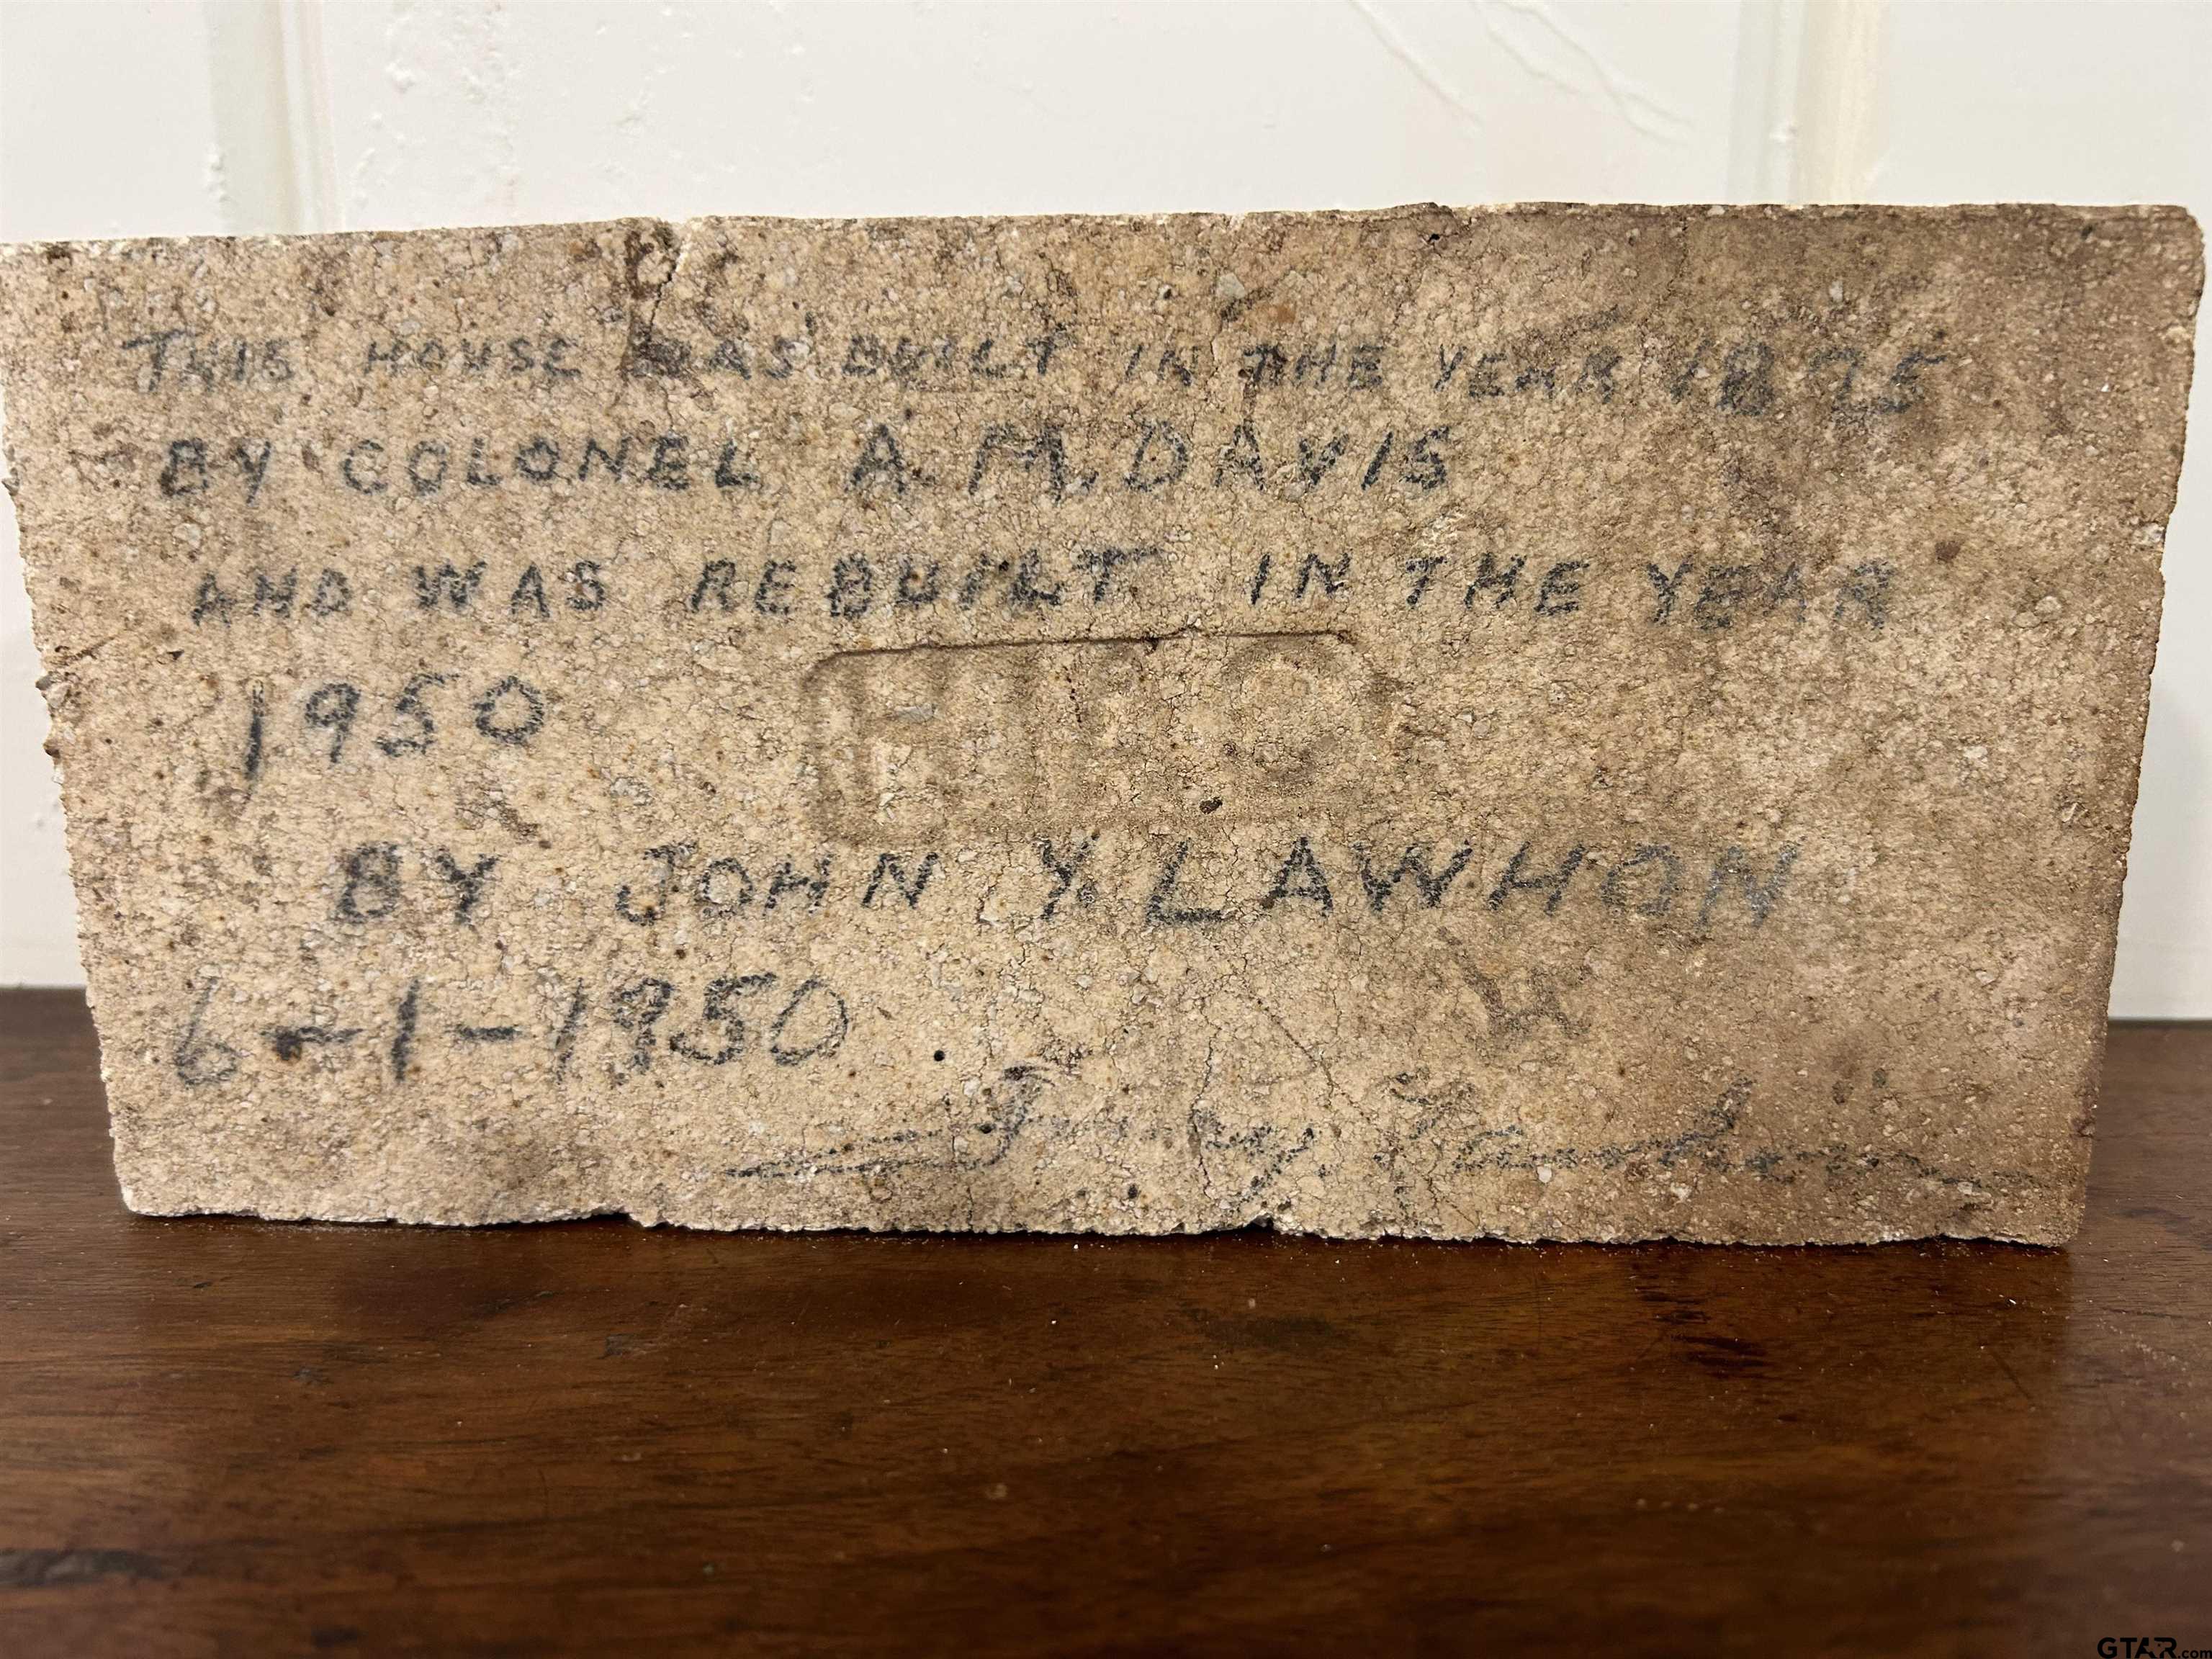 THIS HOUSE WAS BUILT IN THE YEAR 1875
BY COLONEL A. M. DAVIS
AND WAS REBUILT IN THE YEAR
1950
BY JOHN Y LAWHON
6-1-1950
GTAR.com